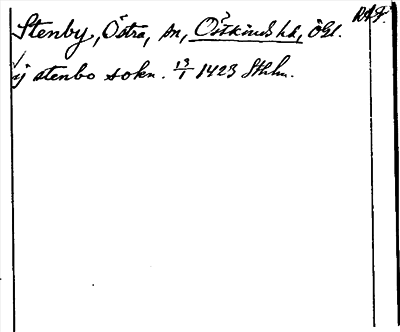 Stenby, Östra, sn, Östkinds hd, Ögl. RAp.
ij stenbo sokn. 13/1 1423 Sthlm.